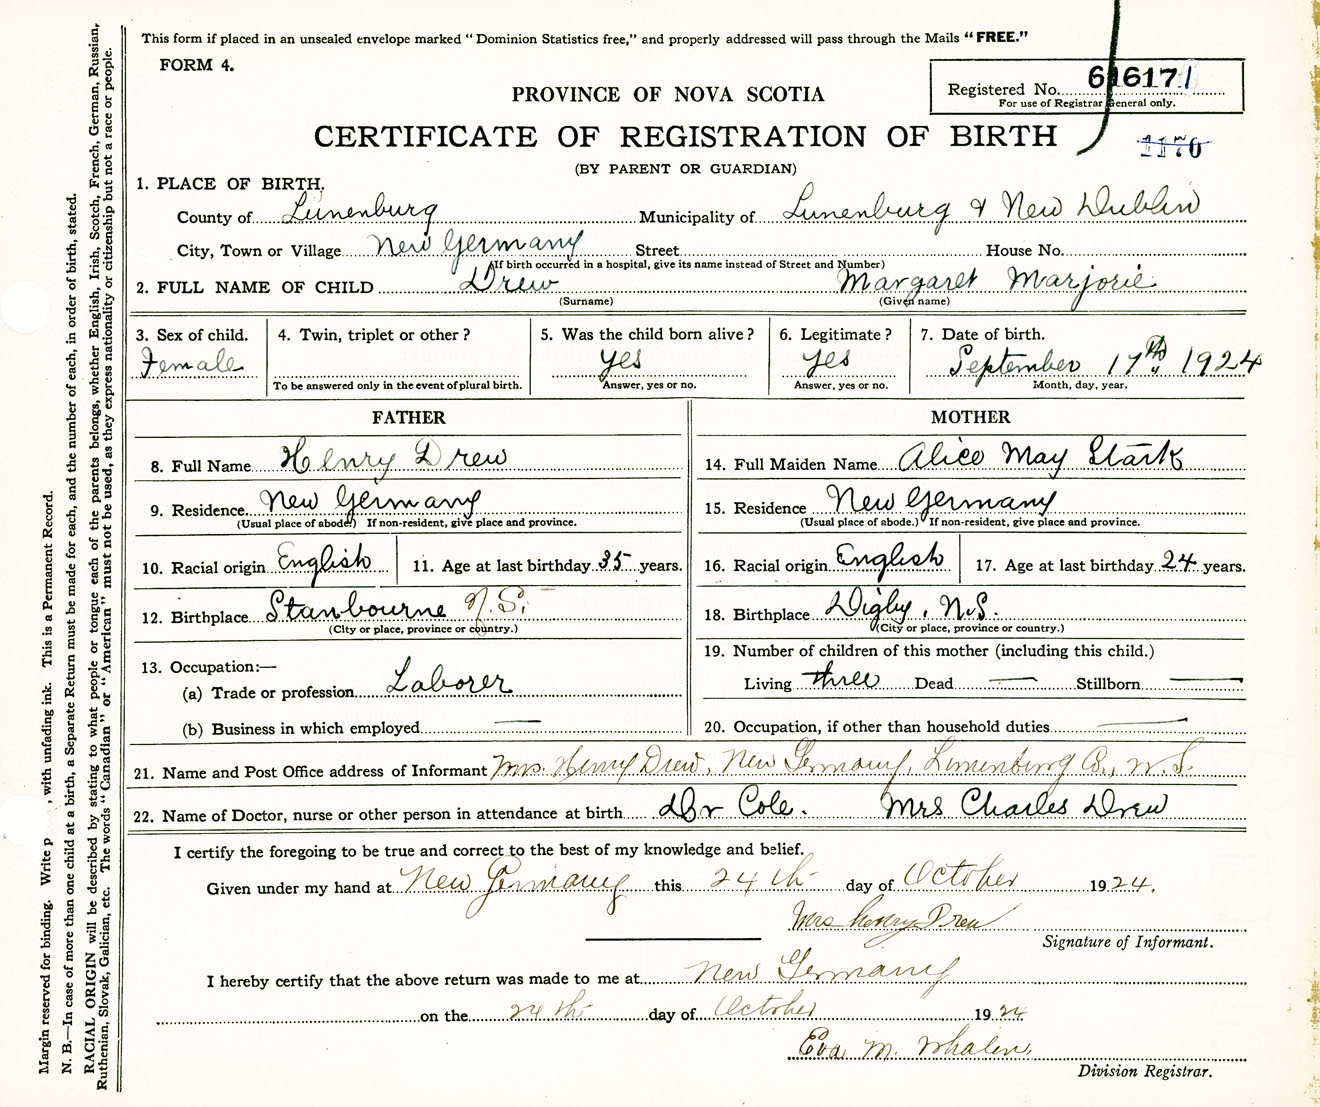 This form if placed in an unsealed envelope marked "Dominion Statistics free," and properly addressed will pass through the Mails "FREE."
FORM 4.
Registered No. 61617
For use of Registrar General only.
PROVINCE OF NOVA SCOTIA
CERTIFICATE OF REGISTRATION OF BIRTH
1170
(BY PARENT OR GUARDIAN)
1. PLACE OF BIRTH.
County of Lunenburg Municipality of Lunenburg & New Dublin
City, Town or Village New Germany Street House No.
(If birth occurred in a hospital, give its name instead of Street and Number)
2. FULL NAME OF CHILD Drew Margaret Marjorie
(Surname) (Given name)
3. Sex of child. 4. Twin, triplet or other? 5. Was the child born alive? 6. Legitimate? 7. Date of birth.
Female yes yes September 17th 1924
To be answered only in the event of plural birth. Answer, yes or no. Answer, yes or no. Month, day, year.
FATHER MOTHER
8. Full Name Henry Drew 14. Full Maiden Name Alice May Stark
9. Residence New Germany 15. Residence New Germany
(Usual place of abode.) If non-resident, give place and province. (Usual place of abode.) If non-resident, give place and province.
10. Racial origin English 11. Age at last birthday 35 years. 16. Racial origin English 17. Age at last birthday 24 years.
12. Birthplace Stanbourne N.S. 18. Birthplace Digby, N.S.
(City or place, province or country.) (City or place, province or country.)
13. Occupation:— 19. Number of children of this mother (including this child.)
(a) Trade or profession Laborer Living three Dead — Stillborn —
(b) Business in which employed — 20. Occupation, if other than household duties —
21. Name and Post Office address of Informant Mrs. Henry Drew, New Germany, Lunenburg Co., N.S.
22. Name of Doctor, nurse or other person in attendance at birth Dr Cole. Mrs Charles Drew
I certify the foregoing to be true and correct to the best of my knowledge and belief.
Given under my hand at New Germany this 24th day of October 1924.
Mrs Henry Drew
Signature of Informant.
I hereby certify that the above return was made to me at New Germany
on the 24th day of October 1924
Eva M. Whalen
Division Registrar.
Margin reserved for binding. Write p , with unfading ink. This is a Permanent Record.
N. B.—In case of more than one child at a birth, a Separate Return must be made for each, and the number of each, in order of birth, stated.
RACIAL ORIGIN will be described by stating to what people or tongue each of the parents belongs, whether English, Irish, Scotch, French, German, Russian,
Ruthenian, Slovak, Galician, etc. The words "Canadian" or "American" must not be used, as they express nationality or citizenship but not a race or people.